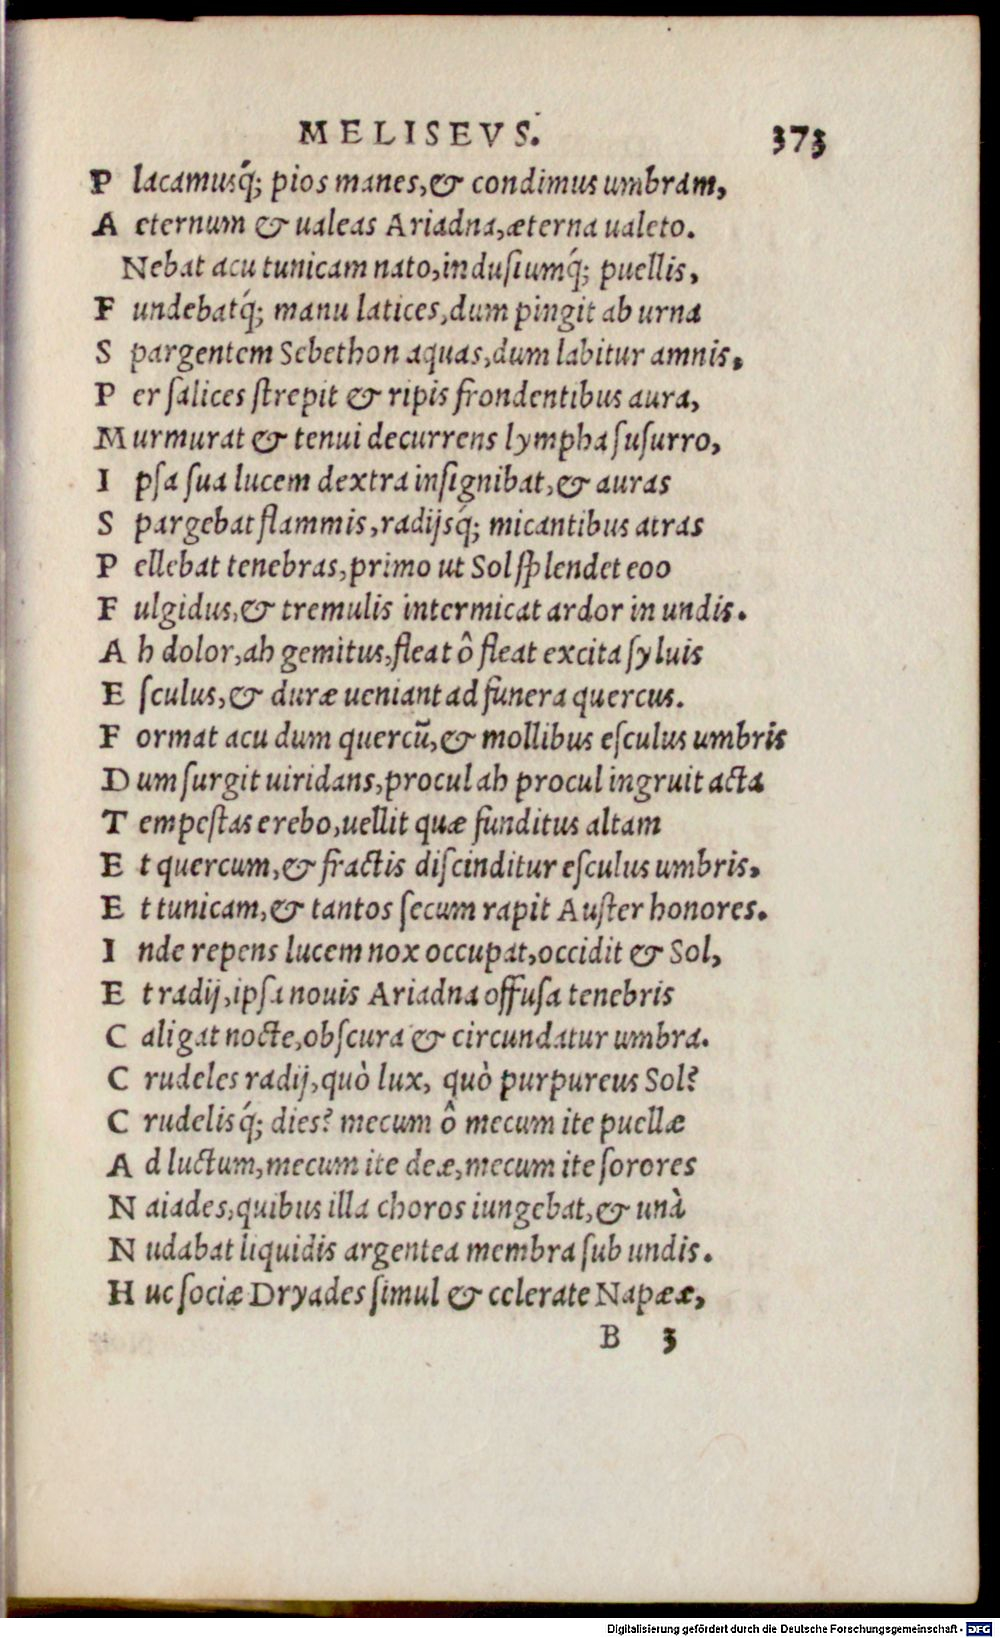 MELISEVS. 373
P lacamusq́; pios manes,& condimus umbram,
A eternum & ualeas Ariadna,æterna ualeto.
Nebat acu tunicam nato,indusiumq́; puellis,
F undebatq́; manu latices,dum pingit ab urna
S pargentem Sebethon aquas,dum labitur amnis,
P er salices strepit & ripis frondentibus aura,
M urmurat & tenui decurrens lympha susurro,
I psa sua lucem dextra insignibat,& auras
S pargebat flammis,radijsq́; micantibus atras
P ellebat tenebras,primo ut Sol splendet eoo
F ulgidus,& tremulis intermicat ardor in undis.
A h dolor,ah gemitus,fleat ô fleat excita syluis
E sculus,& duræ ueniant ad funera quercus.
F ormat acu dum quercū,& mollibus esculus umbris
D um surgit uiridans,procul ah procul ingruit acta
T empestas erebo,uellit quæ funditus altam
E t quercum,& fractis discinditur esculus umbris,
E t tunicam,& tantos secum rapit Auster honores.
I nde repens lucem nox occupat,occidit & Sol,
E t radij,ipsa nouis Ariadna offusa tenebris
C aligat nocte,obscura & circundatur umbra.
C rudeles radij,quò lux, quò purpureus Sol?
C rudelisq́; dies? mecum ô mecum ite puellæ
A d luctum,mecum ite deæ,mecum ite sorores
N aiades,quibus illa choros iungebat,& unà
N udabat liquidis argentea membra sub undis.
H uc sociæ Dryades simul & celerate Napææ,
B 3
Digitalisierung gefördert durch die Deutsche Forschungsgemeinschaft - DFG